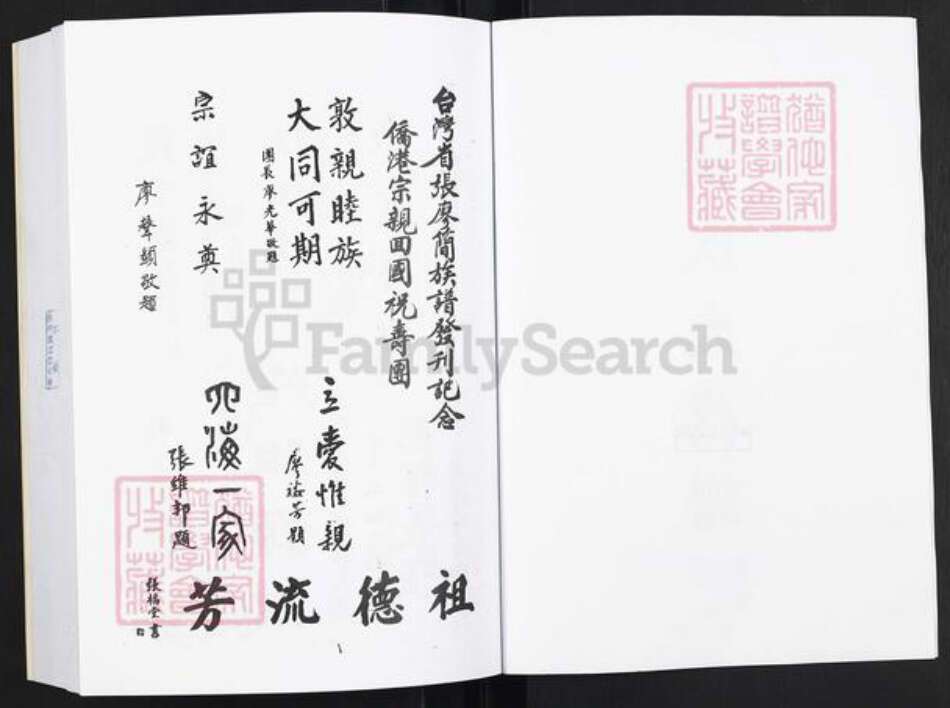 台灣省張廖簡族譜發刊記念
僑港宗親回國祝壽團
敦親睦族
大同可期
團長廖光華敬題
宗誼永奠
廖聲顯敬題
立愛惟親
四海一家
張維邦題
祖德流芳
猶他家
譜學會
收藏
猶他家
譜學會
收藏
FamilySearch